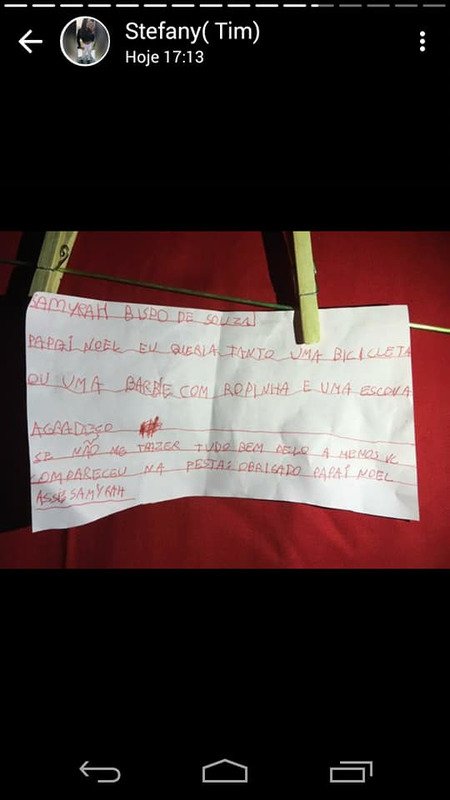 Stefany( Tim)
Hoje 17:13
SAMYRAH BISPO DE SOUZA
PAPAÍ NOEL EU QUERIA TANTO UMA BICICLETA
OU UMA BARBIE COM ROPINHA E UMA ESCOVA
AGRADIÇO
SE NÃO ME TRAZER TUDO BEM PELO A MENOS VC
COMPARECEU NA FESTA: OBRIGADO PAPAÍ NOEL
ASS: SAMYRAH